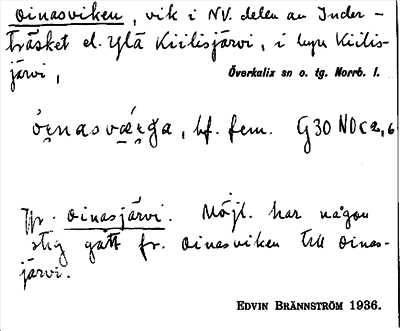 Oinasviken, vik i NV. delen av Inder-
träsket el. Ylä Kiilisjärvi, i byn Kiilis-
järvi,
Överkalix sn o. tg. Norrb. l.
bf. fem. G30 NO c 2, 6
Jfr. Oinasjärvi. Möjl. har någon
stig gått fr. Oinasviken till Oinas-
järvi.
EDVIN BRÄNNSTRÖM 1936.